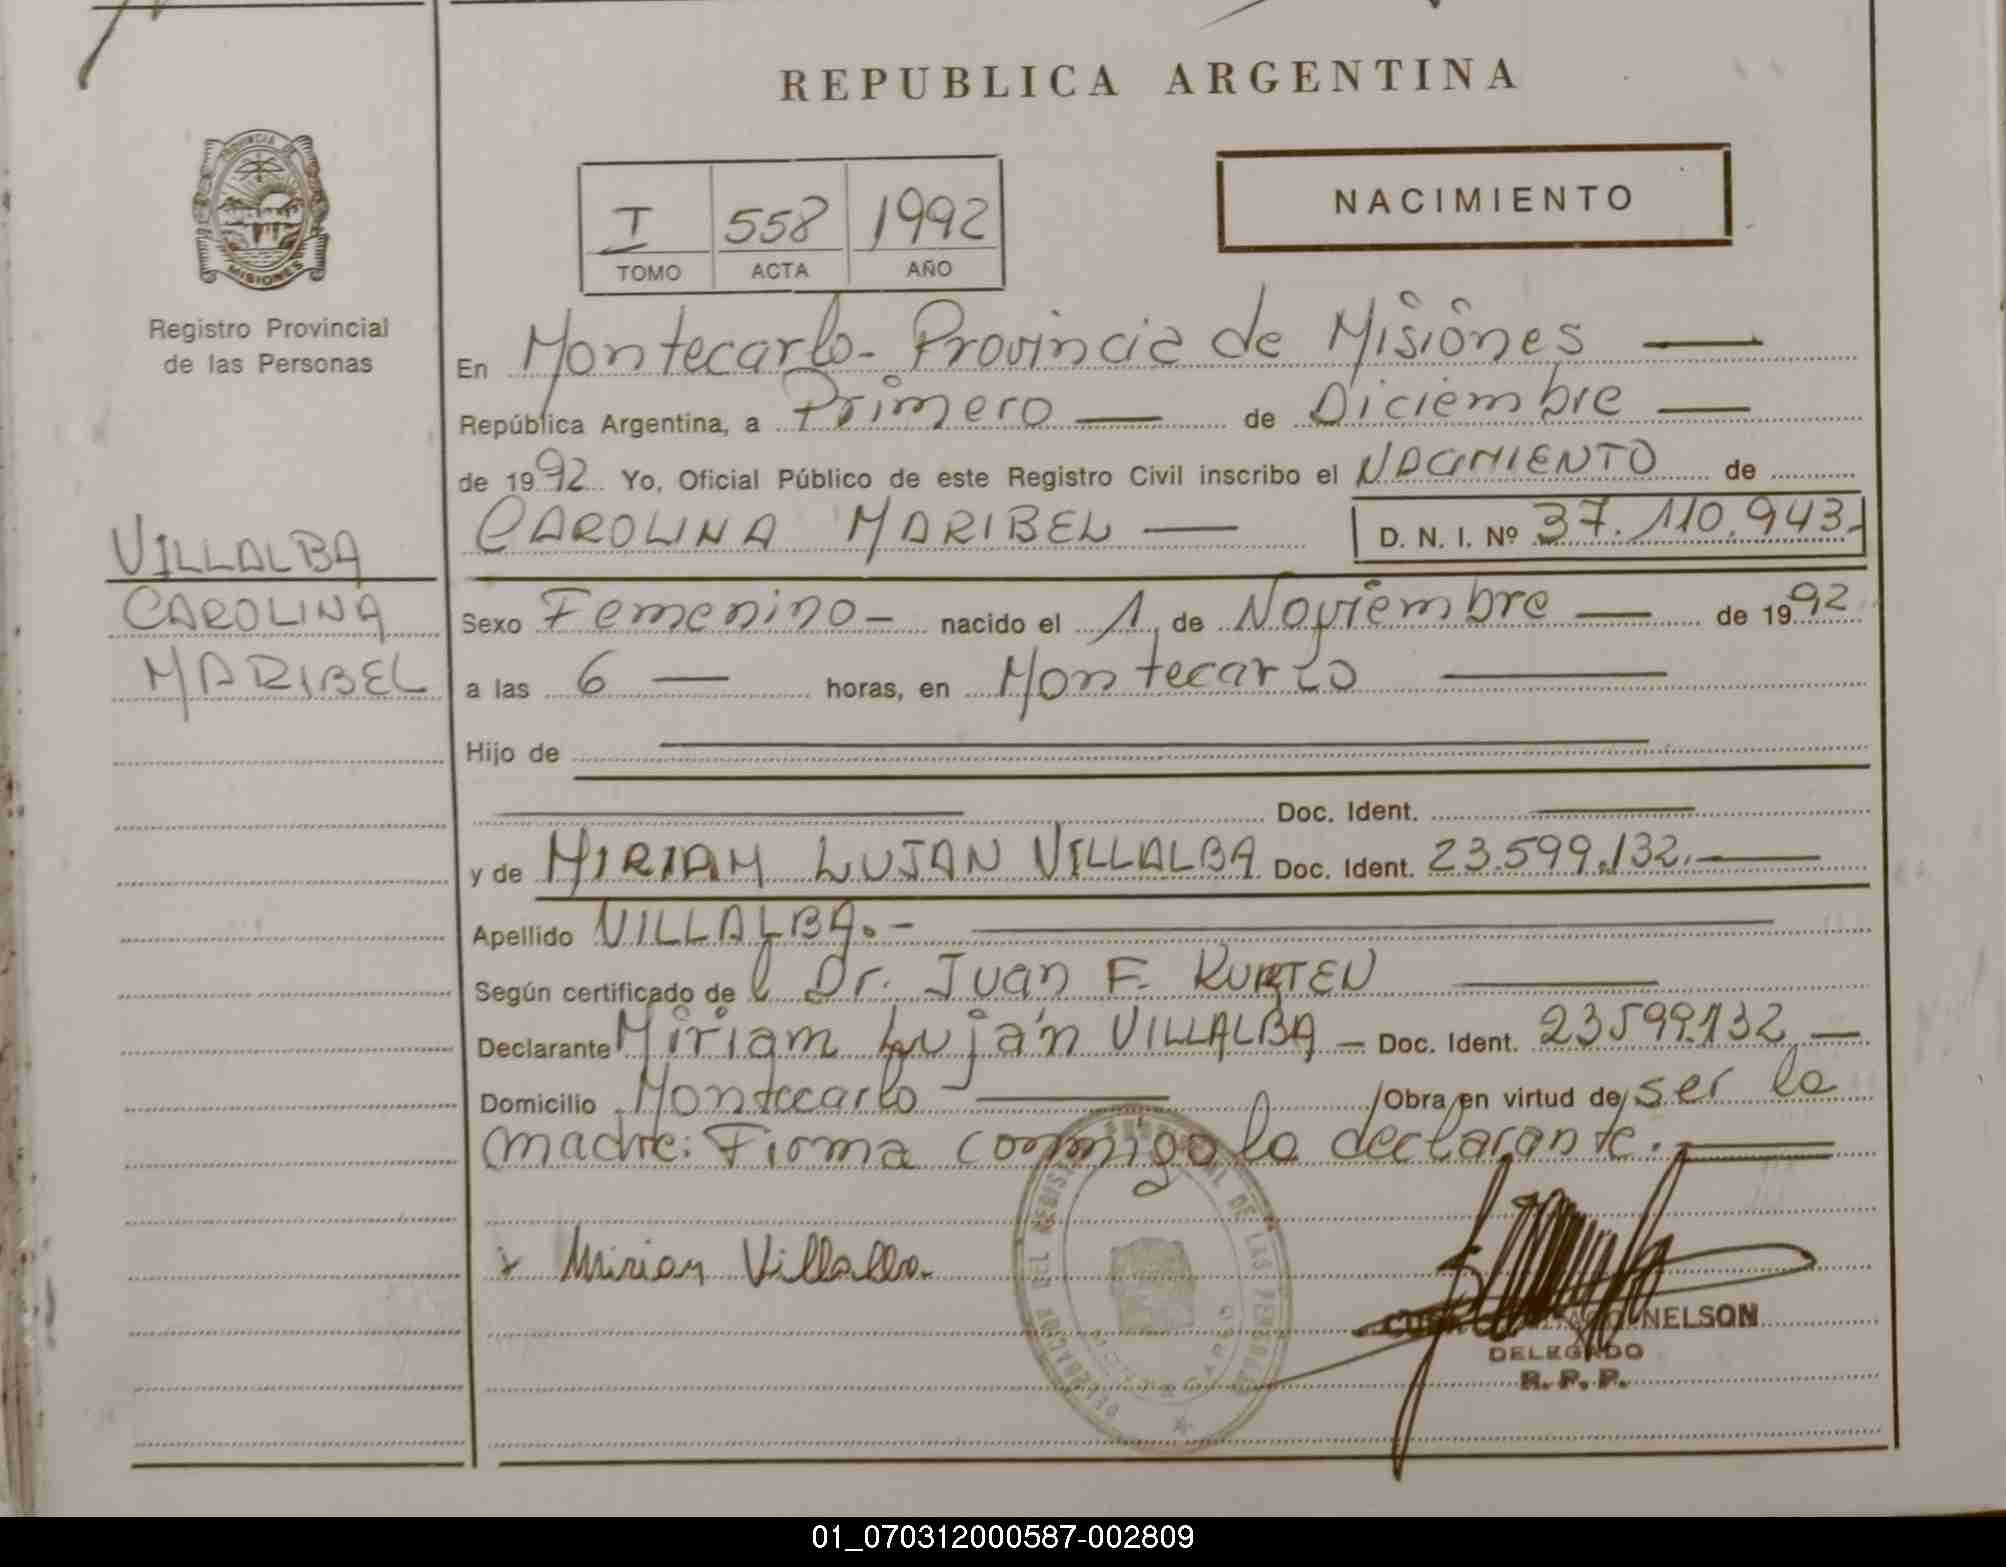 REPUBLICA ARGENTINA
PROVINCIA DE
MISIONES
Registro Provincial
de las Personas
I 558 1992
TOMO ACTA AÑO
NACIMIENTO
En Montecarlo - Provincia de Misiones
República Argentina, a Primero de Diciembre
de 1992 Yo, Oficial Público de este Registro Civil inscribo el NACIMIENTO de
CAROLINA MARIBEL D. N. I. Nº 37.110.943.-
VILLALBA
CAROLINA
MARIBEL
Sexo Femenino - nacido el 1 de Noviembre de 1992
a las 6 horas, en Montecarlo
Hijo de
Doc. Ident.
y de MIRIAM LUJAN VILLALBA Doc. Ident. 23.599.132.-
Apellido VILLALBA.-
Según certificado del Dr. Juan F. KURTEN
Declarante Miriam Luján VILLALBA - Doc. Ident. 23.599.132 -
Domicilio Montecarlo /Obra en virtud de/ ser la
madre: Firma conmigo la declarante.
x Mirian Villalba.
DELEGACION DEL REGISTRO PROVINCIAL DE LAS PERSONAS
MONTECARLO
NELSON
DELEGADO
R. P. P.
01_070312000587-002809